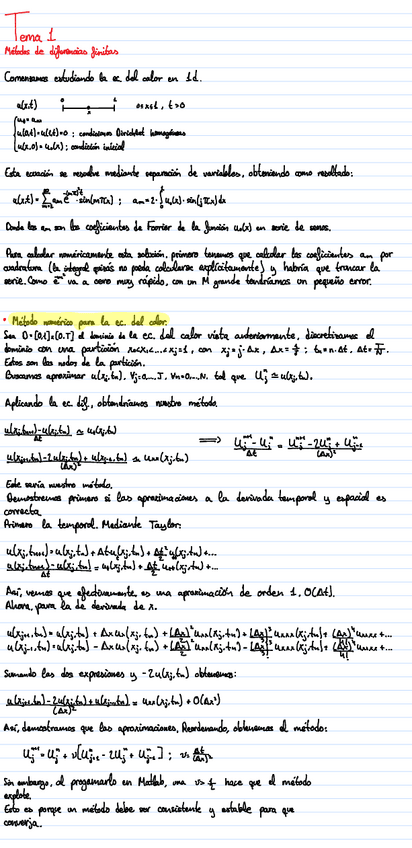 Tema 1
Métodos de diferencias finitas
Comenzamos estudiando la ec. del calor en 1d.
u(x,t) 0 x 1 0≤x≤1, t>0
u_t = u_xx
u(0,t)=u(1,t)=0 : condiciones Dirichlet homogéneas
u(x,0)=u₀(x); condición inicial
Esta ecuación se resuelve mediante separación de variables, obteniendo como resultado:
u(x,t)=∑ a_m e^{-(mπ)²t} · sin(mπx) ; a_m = 2·∫ u₀(x)·sin(jπx)dx
Donde los a_m son los coeficientes de Fourier de la función u₀(x) en serie de senos.
Para calcular numéricamente esta solución, primero tenemos que calcular los coeficientes a_m por
cuadratura (la integral quizás no pueda calcularse explícitamente) y habría que truncar la
serie. Como va a cero muy rápido, con un M grande tendríamos un pequeño error.
• Método numérico para la ec. del calor
Sea D=[0,1]×[0,T] el dominio de la ec. del calor vista anteriormente, discretizamos el
dominio con una partición x₀<x₁<...<x_J=1, con x_j=j·Δx, Δx=1/J ; t_n=n·Δt, Δt=T/N.
Estos son los nodos de la partición.
Buscamos aproximar u(x_j,t_n), ∀j=0,...,J, ∀n=0,...,N. tal que U_j^n ≃ u(x_j,t_n).
Aplicando la ec. dif., obtendríamos nuestro método.
(u(x_j,t_{n+1})-u(x_j,t_n))/Δt ≃ u_t(x_j,t_n)
⟹ (U_j^{n+1}-U_j^n)/Δt = (U_{j+1}^n-2U_j^n+U_{j-1}^n)/(Δx)²
(u(x_{j+1},t_n)-2u(x_j,t_n)+u(x_{j-1},t_n))/(Δx)² ≃ u_xx(x_j,t_n)
Este sería nuestro método.
Demostremos primero si las aproximaciones a la derivada temporal y espacial es
correcta
Primero la temporal. Mediante Taylor:
u(x_j,t_{n+1})=u(x_j,t_n)+Δt u_t(x_j,t_n)+Δt²/2 u_tt(x_j,t_n)+...
(u(x_j,t_{n+1})-u(x_j,t_n))/Δt = u_t(x_j,t_n)+Δt/2 u_tt(x_j,t_n)+...
Así, vemos que efectivamente es una aproximación de orden 1, O(Δt).
Ahora, para la de derivada de x.
u(x_{j+1},t_n)=u(x_j,t_n)+Δx u_x(x_j,t_n)+(Δx)²/2 u_xx(x_j,t_n)+(Δx)³/3! u_xxx(x_j,t_n)+(Δx)⁴/4! u_xxxx+...
u(x_{j-1},t_n)=u(x_j,t_n)-Δx u_x(x_j,t_n)+(Δx)²/2 u_xx(x_j,t_n)-(Δx)³/3! u_xxx(x_j,t_n)+(Δx)⁴/4! u_xxxx+...
Sumando las dos expresiones y -2u(x_j,t_n) obtenemos:
(u(x_{j+1},t_n)-2u(x_j,t_n)+u(x_{j-1},t_n))/(Δx)² = u_xx(x_j,t_n)+O(Δx²)
Así, demostramos que las aproximaciones, Reordenando, obtenemos el método:
U_j^{n+1}=U_j^n+ν[U_{j+1}^n-2U_j^n+U_{j-1}^n] ; ν=Δt/(Δx)²
Sin embargo, al programarlo en Matlab, una ν>1/2 hace que el método
explote.
Esto es porque un método debe ser consistente y estable para que
converja.